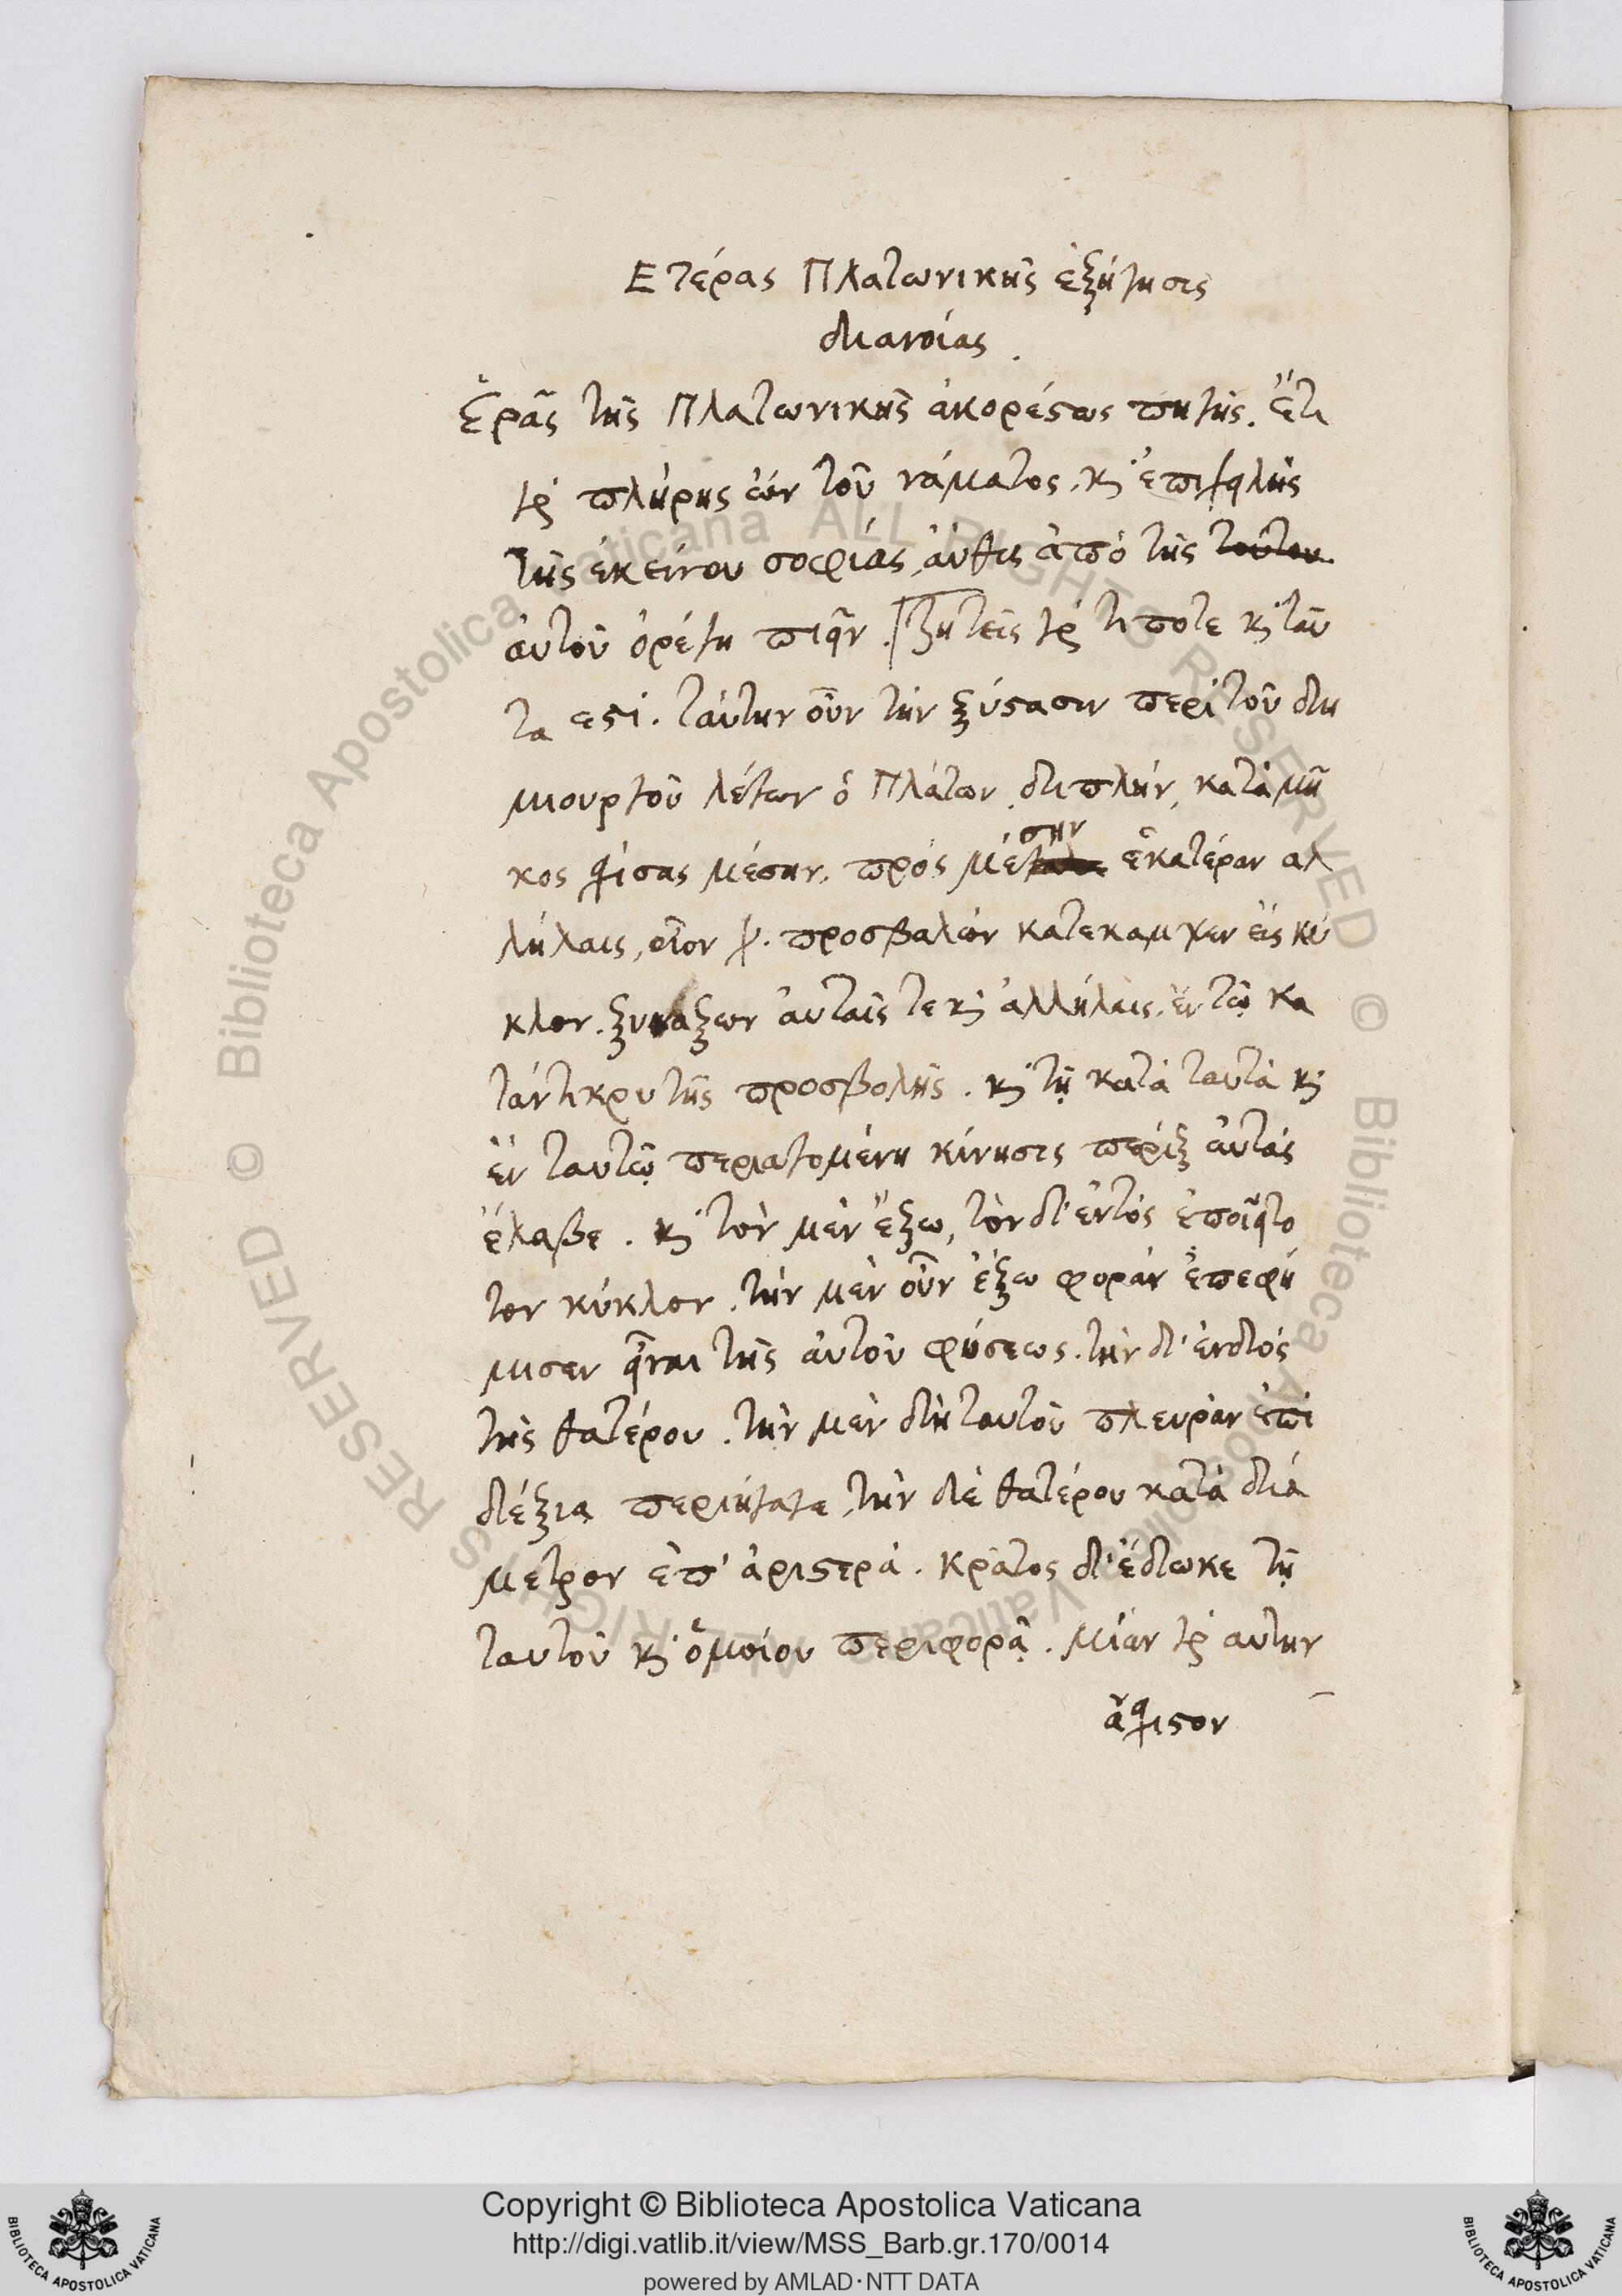 Ετέρας Πλατωνικῆς ἐξήγησις
διανοίας.
Ἐρᾶς τῆς Πλατωνικῆς ἀκορέστως πηγῆς. ἔτι
γὰρ πλήρης ὢν τοῦ νάματος, κ̀ ἐπιχειλὴς
τῆς ἐκείνου σοφίας, αὖθις ἀπὸ τῆς τούτου
αὐτοῦ ὀρέγῃ πιεῖν. ζητεῖς γὰρ τί ποτε κ̀ ταῦ
τα εστί. ταύτην οὖν τὴν ξύστασιν περὶ τοῦ δη
μιουργοῦ λέγων ὁ Πλάτων, διπλῆν, κατὰ μῆ
κος σχίσας μέσην, πρὸς μέσην ἑκατέραν αλ
λήλαις, οἷον χ. προσβαλὼν κατεκαμψεν εἰς κύ
κλον. ξυνάξων αὐταῖς τε κ̀ ἀλλήλαις, ἐν τῷ κα
ταντικρυ τῆς προσβολῆς. κ̀ τῇ κατὰ ταυτὰ κ̀
ἐν ταυτῷ περιαγομένῃ κίνησις πέριξ αὐτὰς
ἔλαβε. κ̀ τὸν μὲν ἔξω, τὸν δ' ἐντὸς ἐποιεῖτο
τον κύκλον. τὴν μὲν οὖν ἔξω φορὰν ἐπεφή
μισεν εἶναι τῆς αὐτοῦ φύσεως. τὴν δ' ἐνδὸς
τῆς θατέρου. τὴν μὲν δὴ ταυτοῦ πλευρὰν ἐπὶ
δέξια περιήγαγε, τὴν δὲ θατέρου κατὰ διά
μετρον ἐπ' ἀριστερά. κράτος δ' ἔδωκε τῇ
ταυτοῦ κ̀ ὁμοίου περιφορᾷ. μίαν γὰρ αυτὴν
ἄσχιστον
Copyright © Biblioteca Apostolica Vaticana
http://digi.vatlib.it/view/MSS_Barb.gr.170/0014
powered by AMLAD·NTT DATA
© Biblioteca Apostolica Vaticana ALL RIGHTS RESERVED
© Biblioteca Apostolica Vaticana ALL RIGHTS RESERVED
BIBLIOTECA APOSTOLICA VATICANA
BIBLIOTECA APOSTOLICA VATICANA